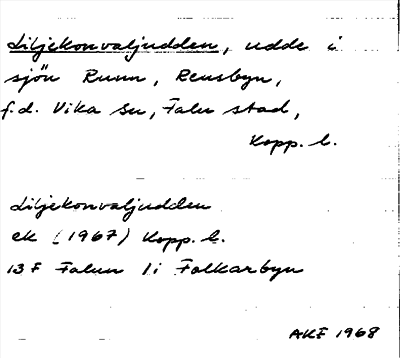 Liljekonvaljudden, udde i
sjön Runn, Rensbyn,
f.d. Vika sn, Falu stad,
Kopp. l.
Liljekonvaljudden
ek (1967) Kopp. l.
13 F Falun 1i Folkarbyn
AKE 1968